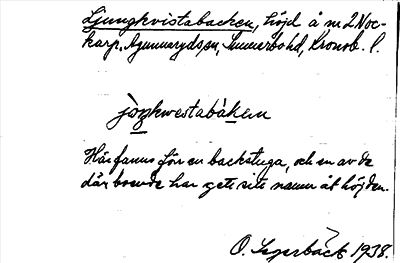 Ljungkvistabacken, höjd å nr 2 Noc-
karp, Agunnaryds sn, Sunnerbo hd, Kronob. l.
jòŋkwestabàken
Här fanns förr en backstuga, och en av de
där boende har gett sitt namn åt höjden.
O. Segerbäck 1938.